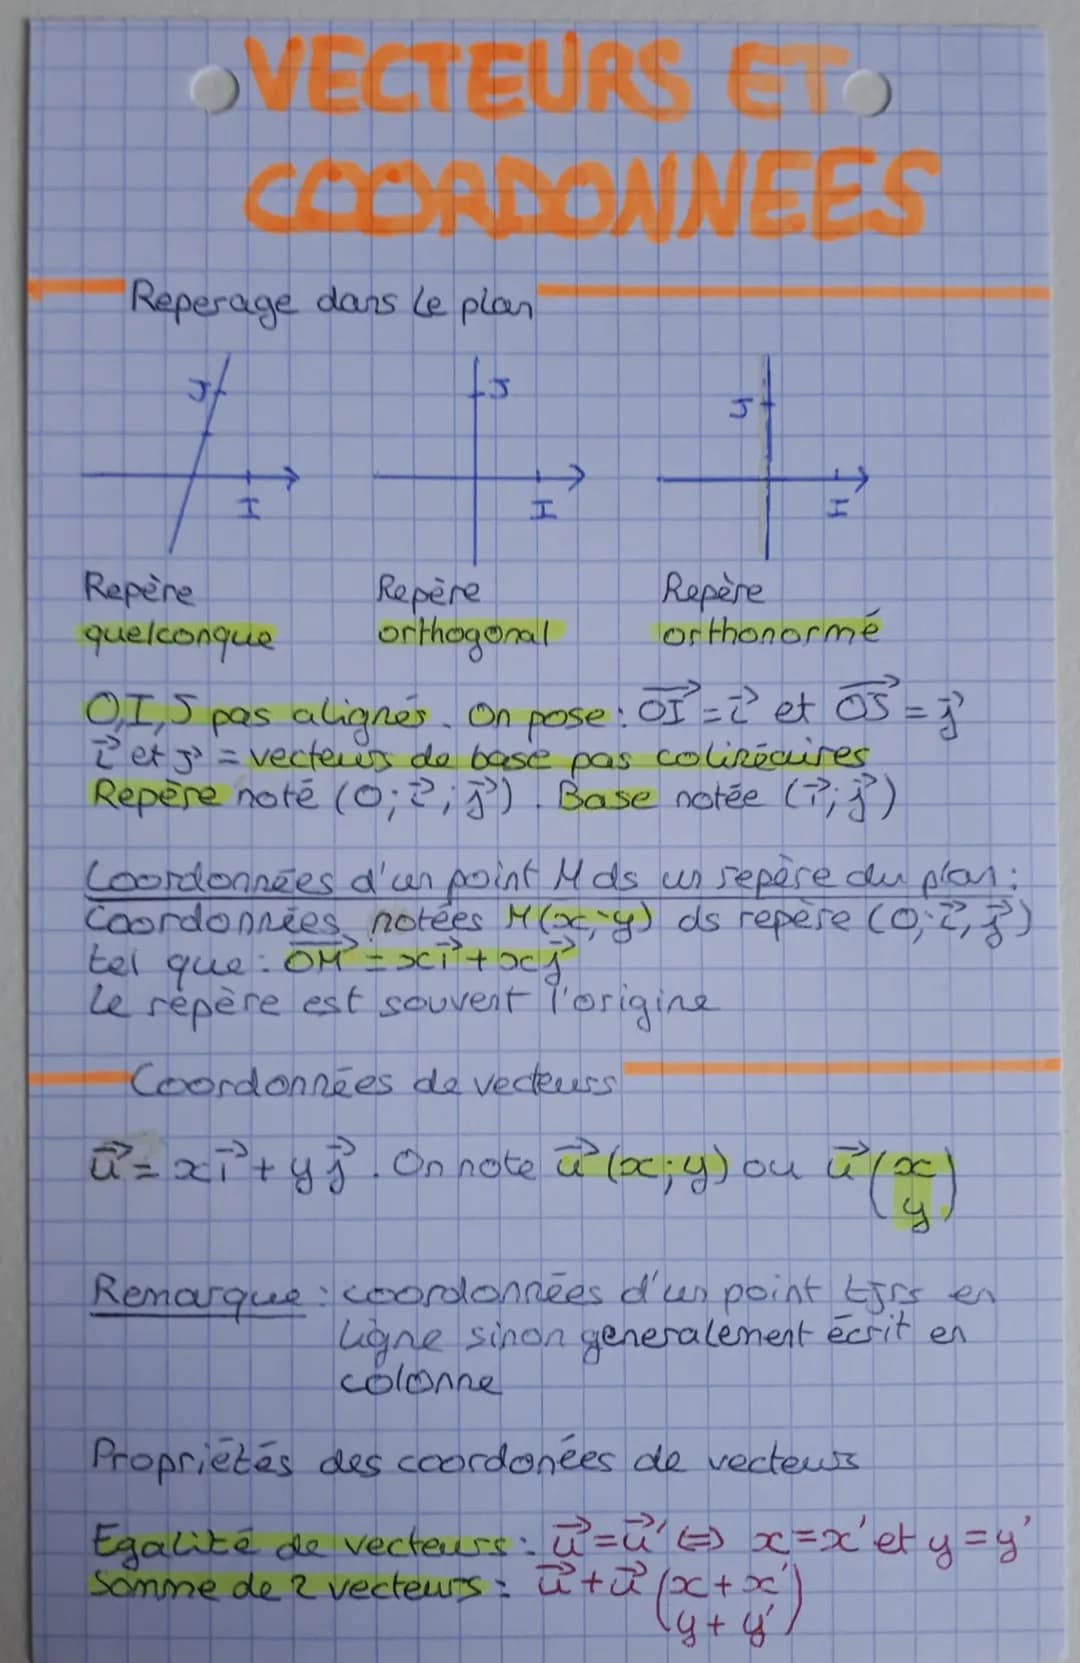 VECTEURS ET
COORDONNEES
Reperage dans le plan
J J J
I I I
Repère Repère Repère
quelconque orthogonal orthonormé
O,I,J pas alignés. On pose : OI→ = i→ et OJ→ = j→
i→ et j→ = vecteurs de base pas colinéaires
Repère noté (O; i→; j→). Base notée (i→; j→)
Coordonnées d'un point M ds un repère du plan :
Coordonnées notées M(x;y) ds repère (O; i→, j→)
tel que : OM→ = xi→ + xj→
Le repère est souvent l'origine
Coordonnées de vecteurs
u→ = xi→ + yj→. On note u→(x;y) ou u→(x
y)
Remarque : coordonnées d'un point tjrs en
ligne sinon generalement écrit en
colonne
Propriétés des coordonées de vecteurs
Egalité de vecteurs : u→ = u→' ⇔ x = x' et y = y'
Somme de 2 vecteurs : u→ + u→ (x + x'
y + y')